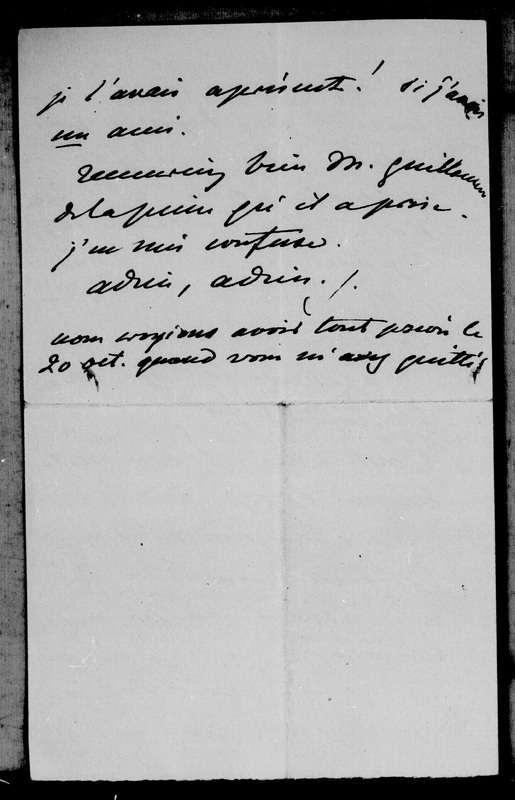 je l'avais à présent! si j'avais
un ami.
Remerciez bien M. Guillaumin
de la peine qu'il a prise.
j'en suis confuse.
adieu, adieu. /.
nous croyions avoir tout prévu le
20 oct. quand vous m'avez quittée